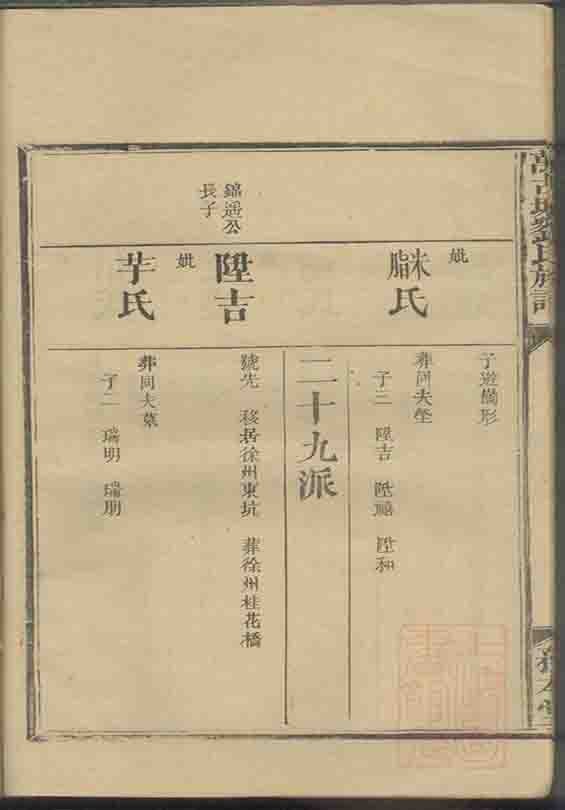 氏族記
務本堂
妣
氏
葬同夫塋
子三 陞吉 陞禧 陞和
二十九派
錦遥公
長子
陞吉
號先 移居徐州東坑 葬徐州桂花橋
妣
芉氏
葬同夫墓
子二 瑞明 瑞朋